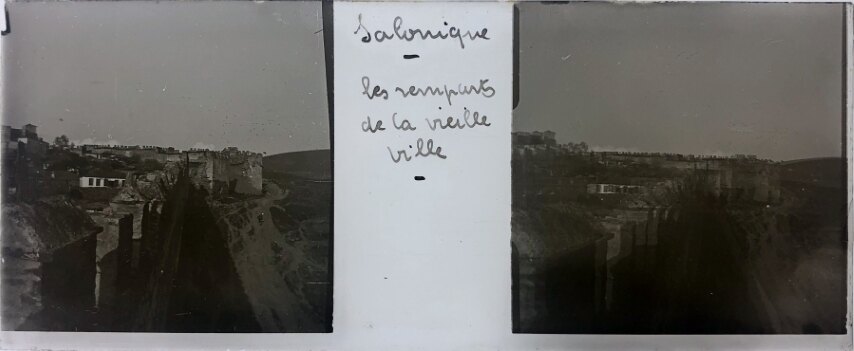 Salonique
les remparts
de la vieille
ville